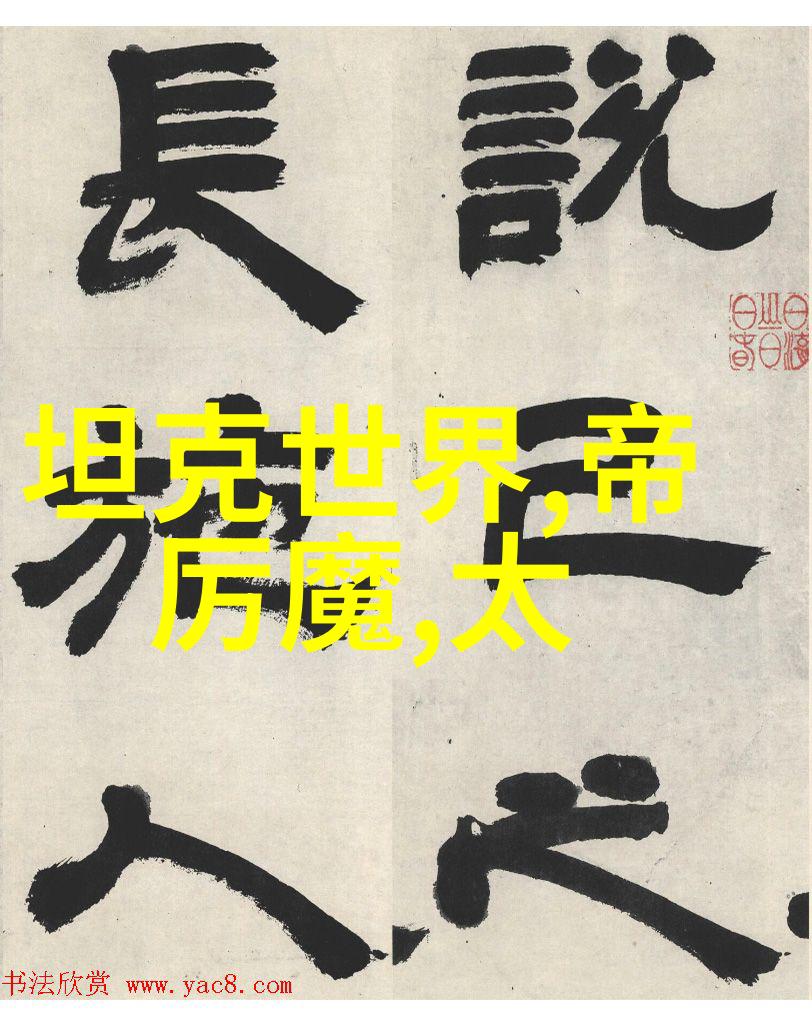 說己之
長施人
坦克世界,帝
厉魔,太
书法欣赏 www.yac8.com